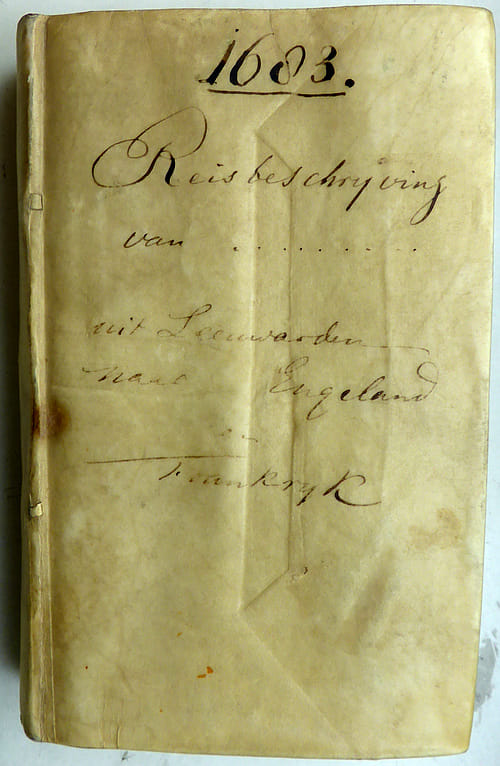 1683.
Reisbeschryving
van . . . . . . . . .
uit Leeuwarden
naar Engeland
en
Frankryk